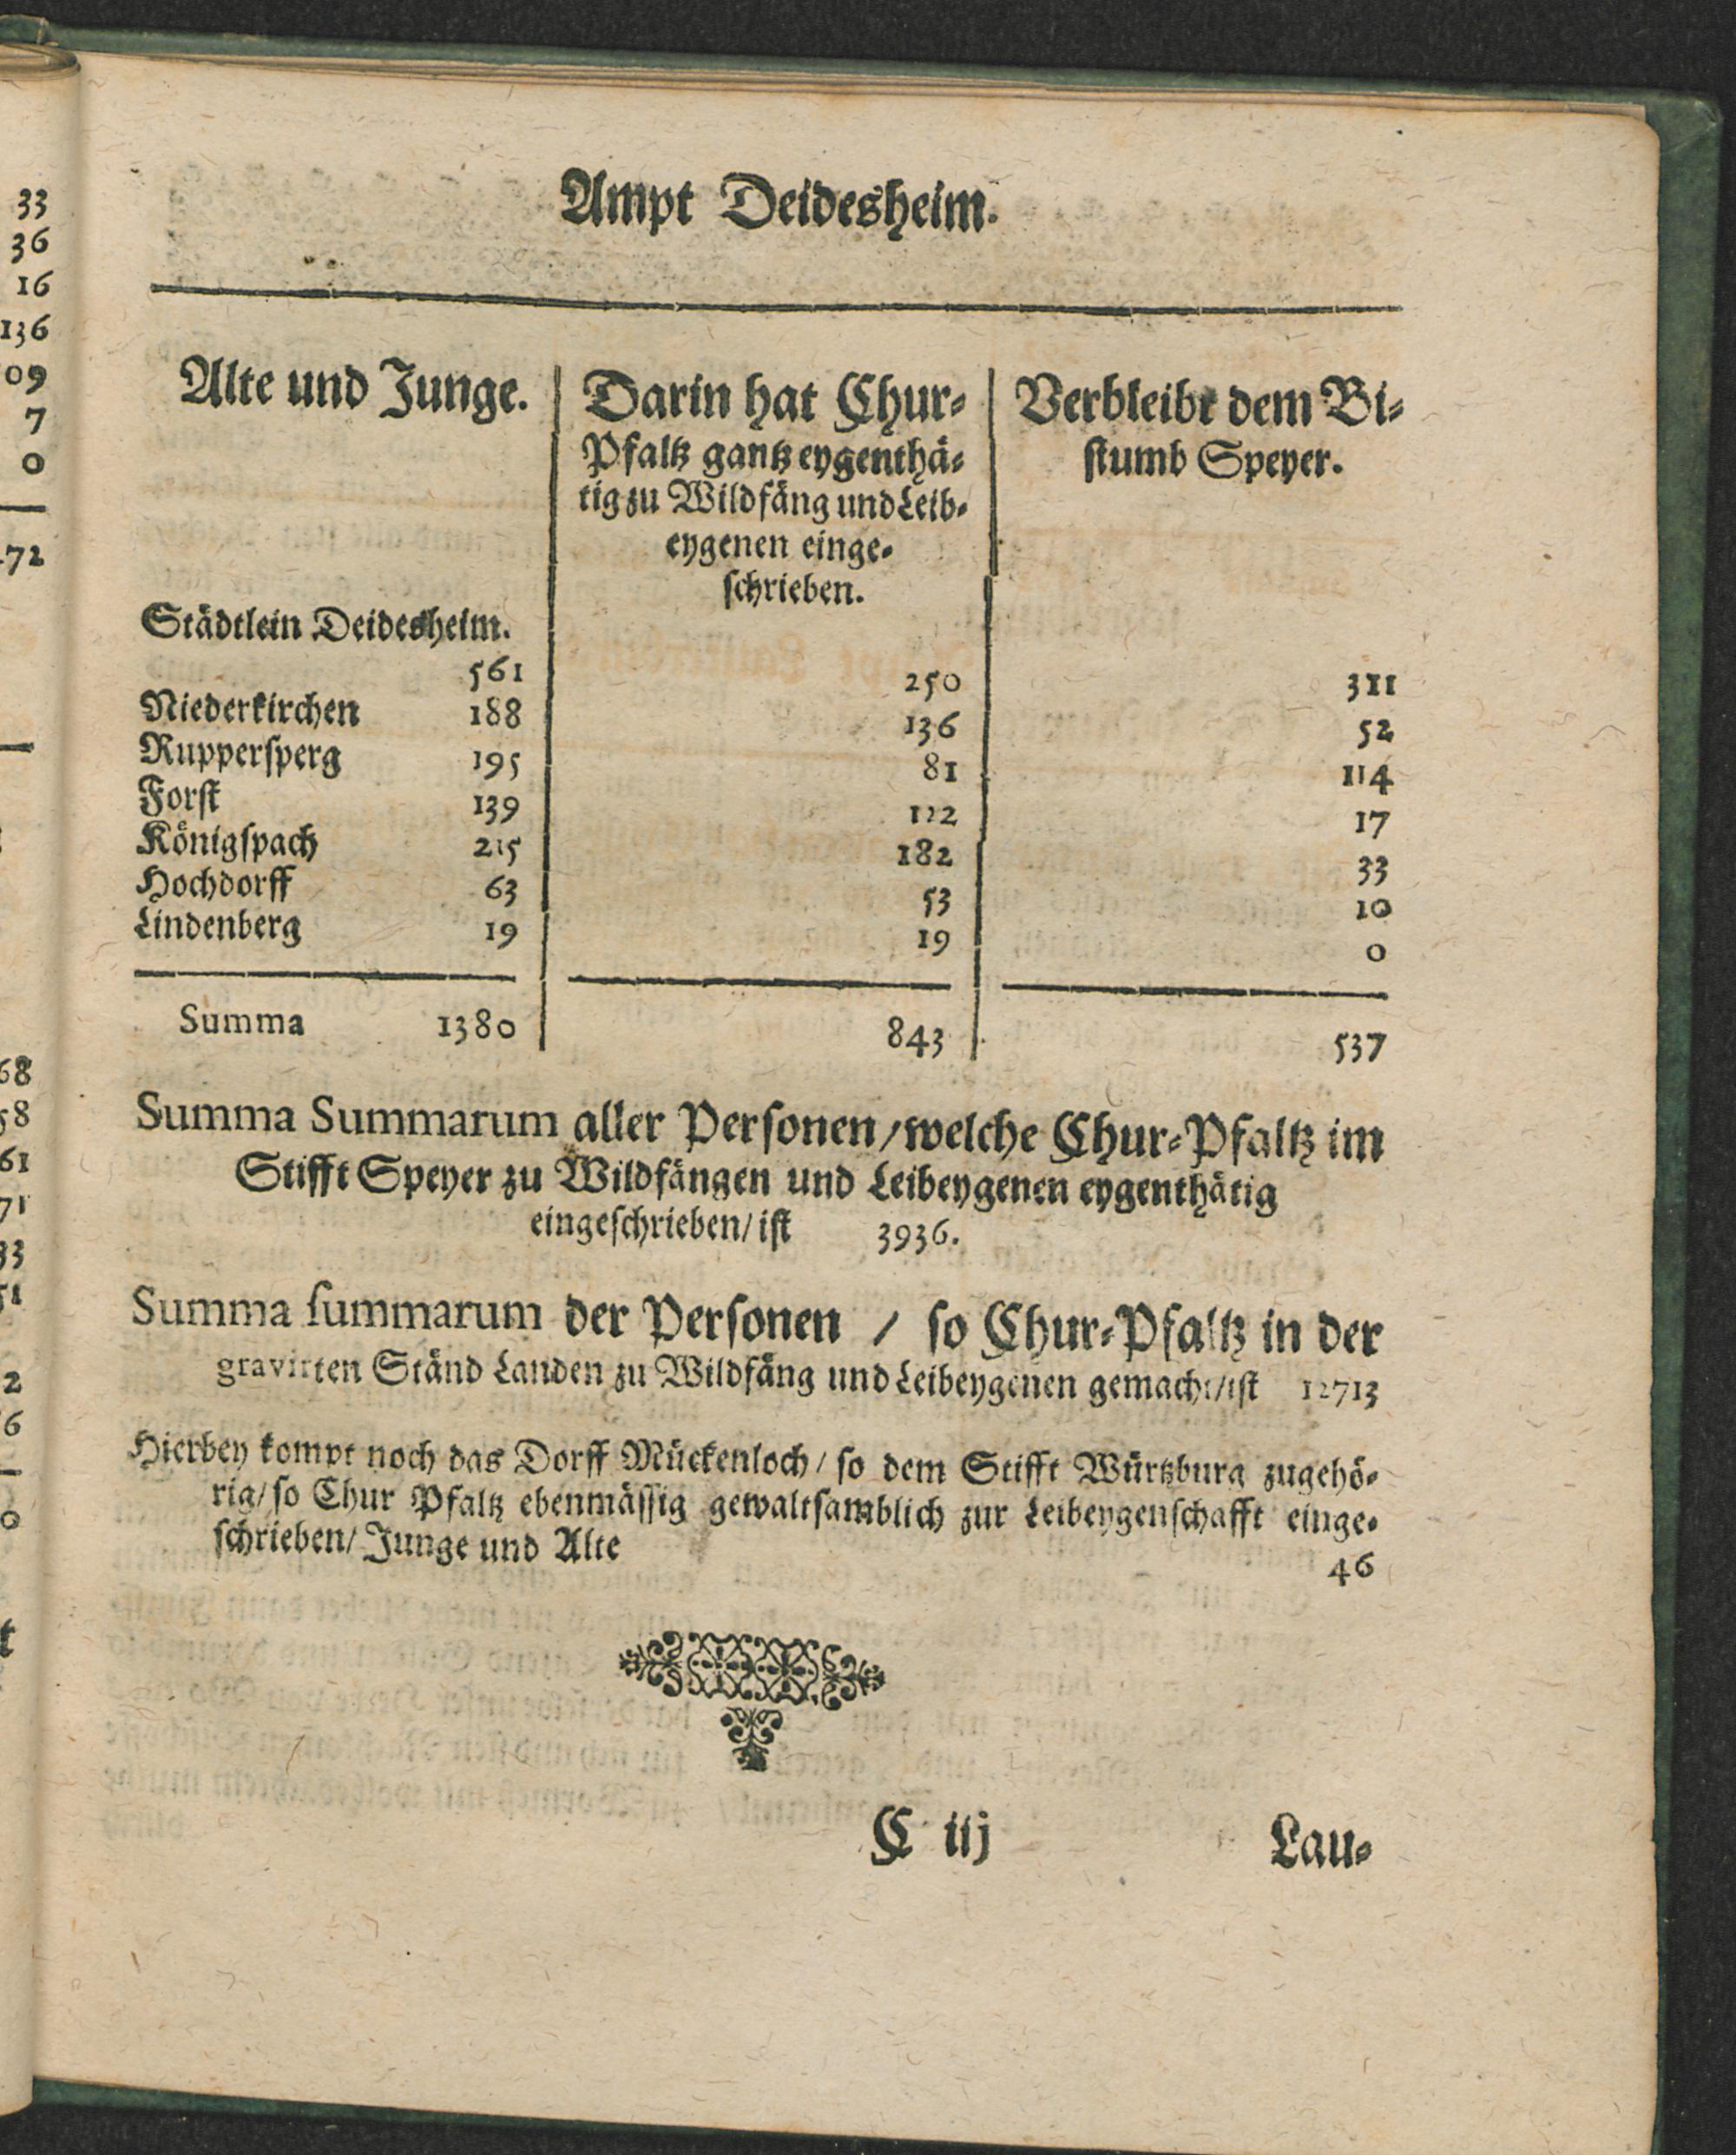 33
36
16
136
09
7
0
72
68
58
61
71
33
51
2
6
0
t
Ampt Deidesheim.
Alte und Junge.
Darin hat Chur-
Pfaltz gantz eygenthä-
tig zu Wildfäng und Leib-
eygenen einge-
schrieben.
Verbleibt dem Bi-
stumb Speyer.
Städtlein Deidesheim.
561 250 311
Niederkirchen 188 136 52
Ruppersperg 195 81 114
Forst 139 122 17
Königspach 215 182 33
Hochdorff 63 53 10
Lindenberg 19 19 0
Summa 1380 843 537
Summa Summarum aller Personen / welche Chur-Pfaltz im
Stifft Speyer zu Wildfängen und Leibeygenen eygenthätig
eingeschrieben / ist 3936.
Summa summarum der Personen / so Chur-Pfaltz in der
gravirten Ständ Landen zu Wildfäng und Leibeygenen gemacht / ist 12713
Hierbey kompt noch das Dorff Mückenloch / so dem Stifft Würtzburg zugehö-
rig / so Chur Pfaltz ebenmässig gewaltsamblich zur Leibeygenschafft einge-
schrieben / Junge und Alte 46
C iij Lau-